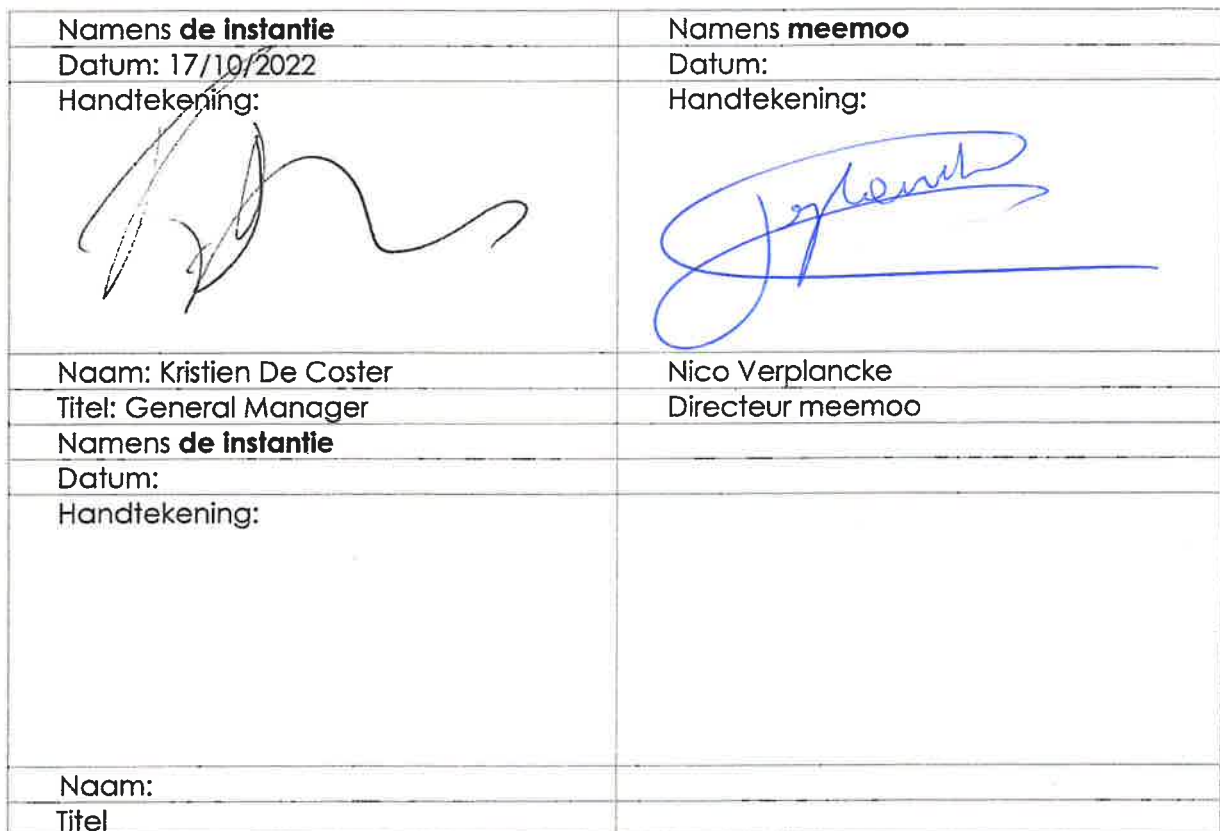 Namens de instantie
Namens meemoo
Datum: 17/10/2022
Datum:
Handtekening:
Handtekening:
Naam: Kristien De Coster
Nico Verplancke
Titel: General Manager
Directeur meemoo
Namens de instantie
Datum:
Handtekening:
Naam:
Titel